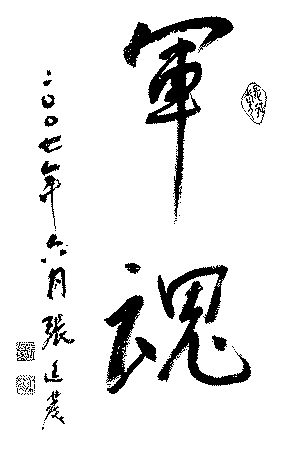 軍魂
二〇〇七年六月張廷發